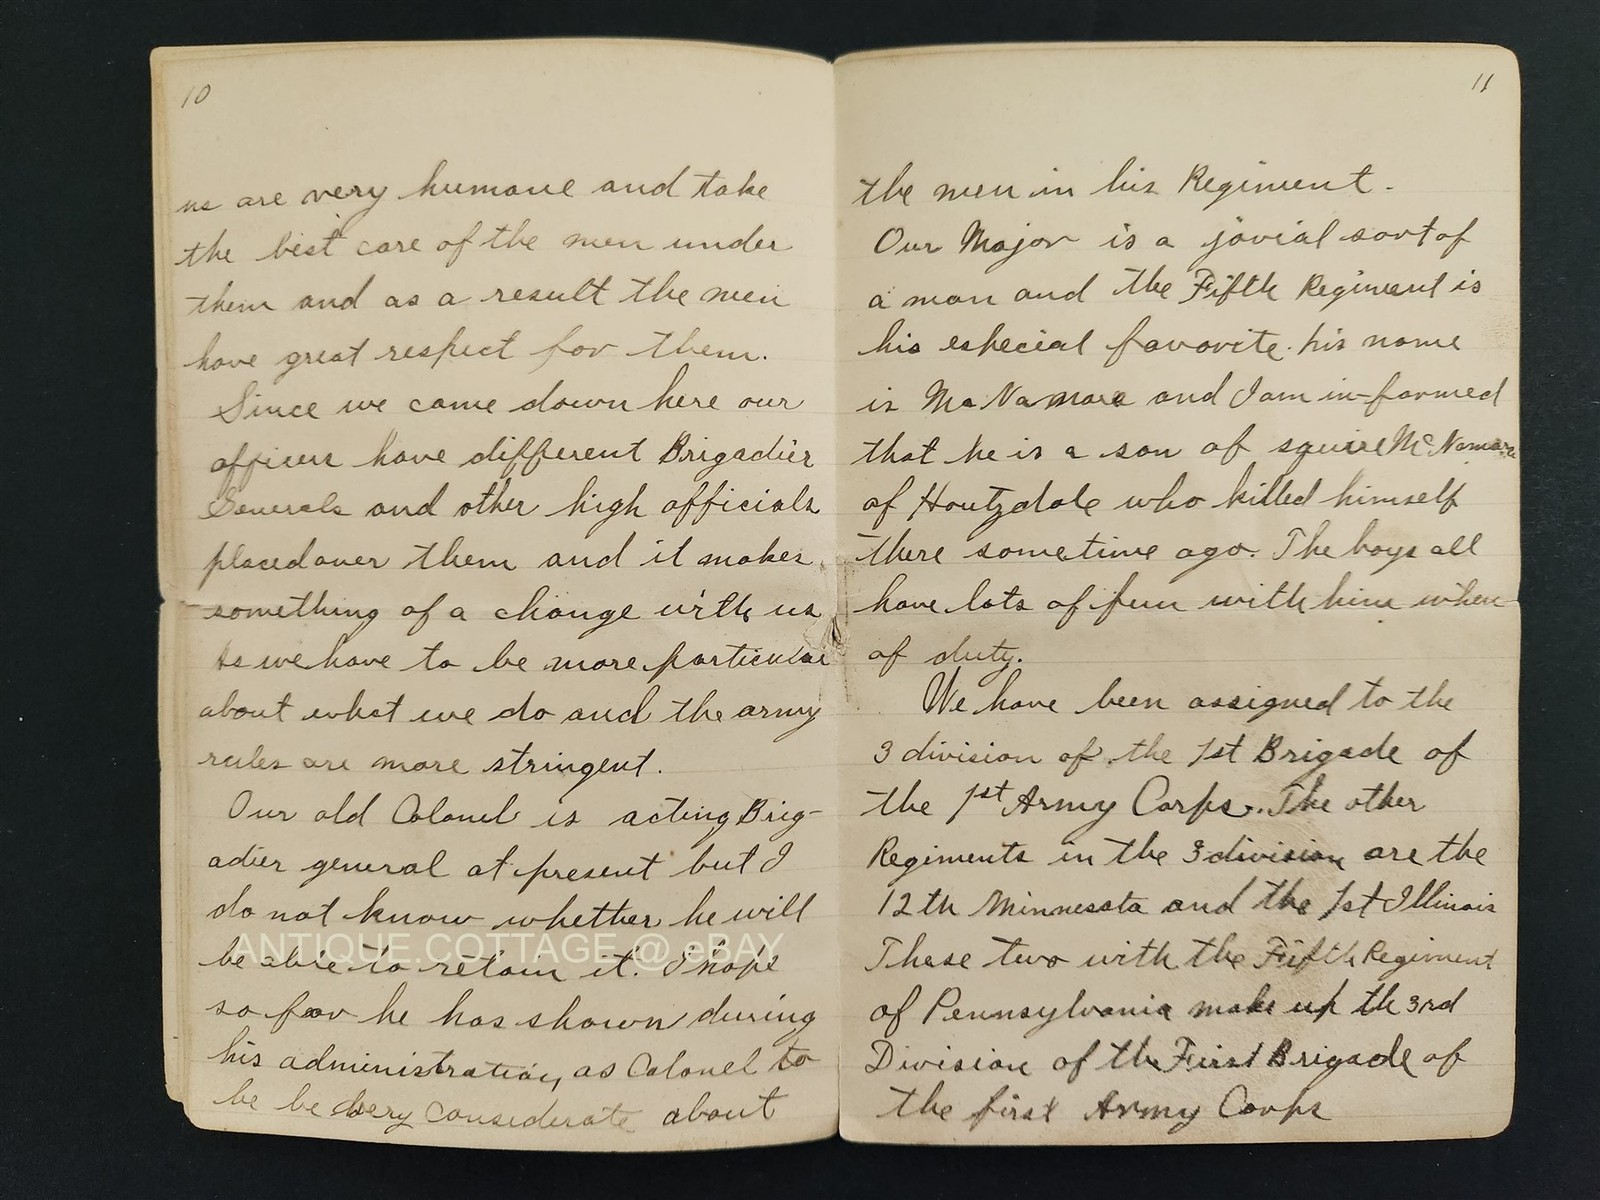 10
us are very humane and take
the best care of the men under
them and as a result the men
have great respect for them.
Since we came down here our
officers have different Brigadier
Generals and other high officials
placed over them and it makes
something of a change with us
As we have to be more particular
about what we do and the army
rules are more stringent.
Our old Colonel is acting Brig-
adier general at present but I
do not know whether he will
be able to retain it. I hope
so for he has shown during
his administration, as Colonel to
be be very considerate about
ANTIQUE.COTTAGE @ eBAY
11
the men in his Regiment.
Our Major is a jovial sort of
a man and the Fifth Regiment is
his especial favorite. his name
is McNamara and I am in-formed
that he is a son of squire McNamara
of Houtzdale who killed himself
there sometime ago. The boys all
have lots of fun with him when
of duty.
We have been assigned to the
3 division of the 1st Brigade of
the 1st Army Corps. The other
Regiments in the 3 division are the
12th Minnesota and the 1st Illinois
These two with the Fifth Regiment
of Pennsylvania make up th 3rd
Division of the First Brigade of
the first Army Corps